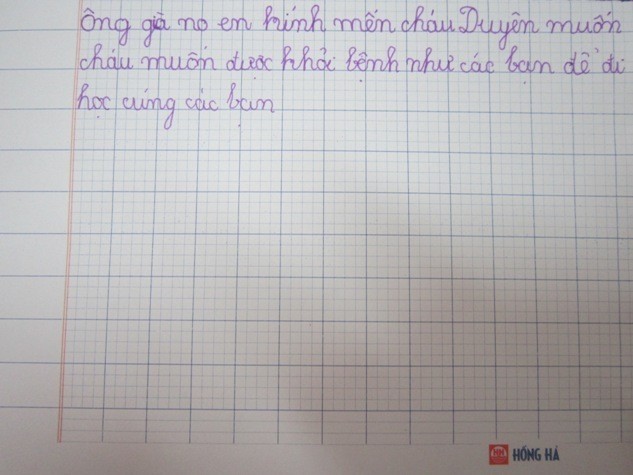 Ông già no en kính mến cháu Duyên muốn
cháu muốn được khỏi bệnh như các bạn dể di
học cúng các bạn
HH HỒNG HÀ